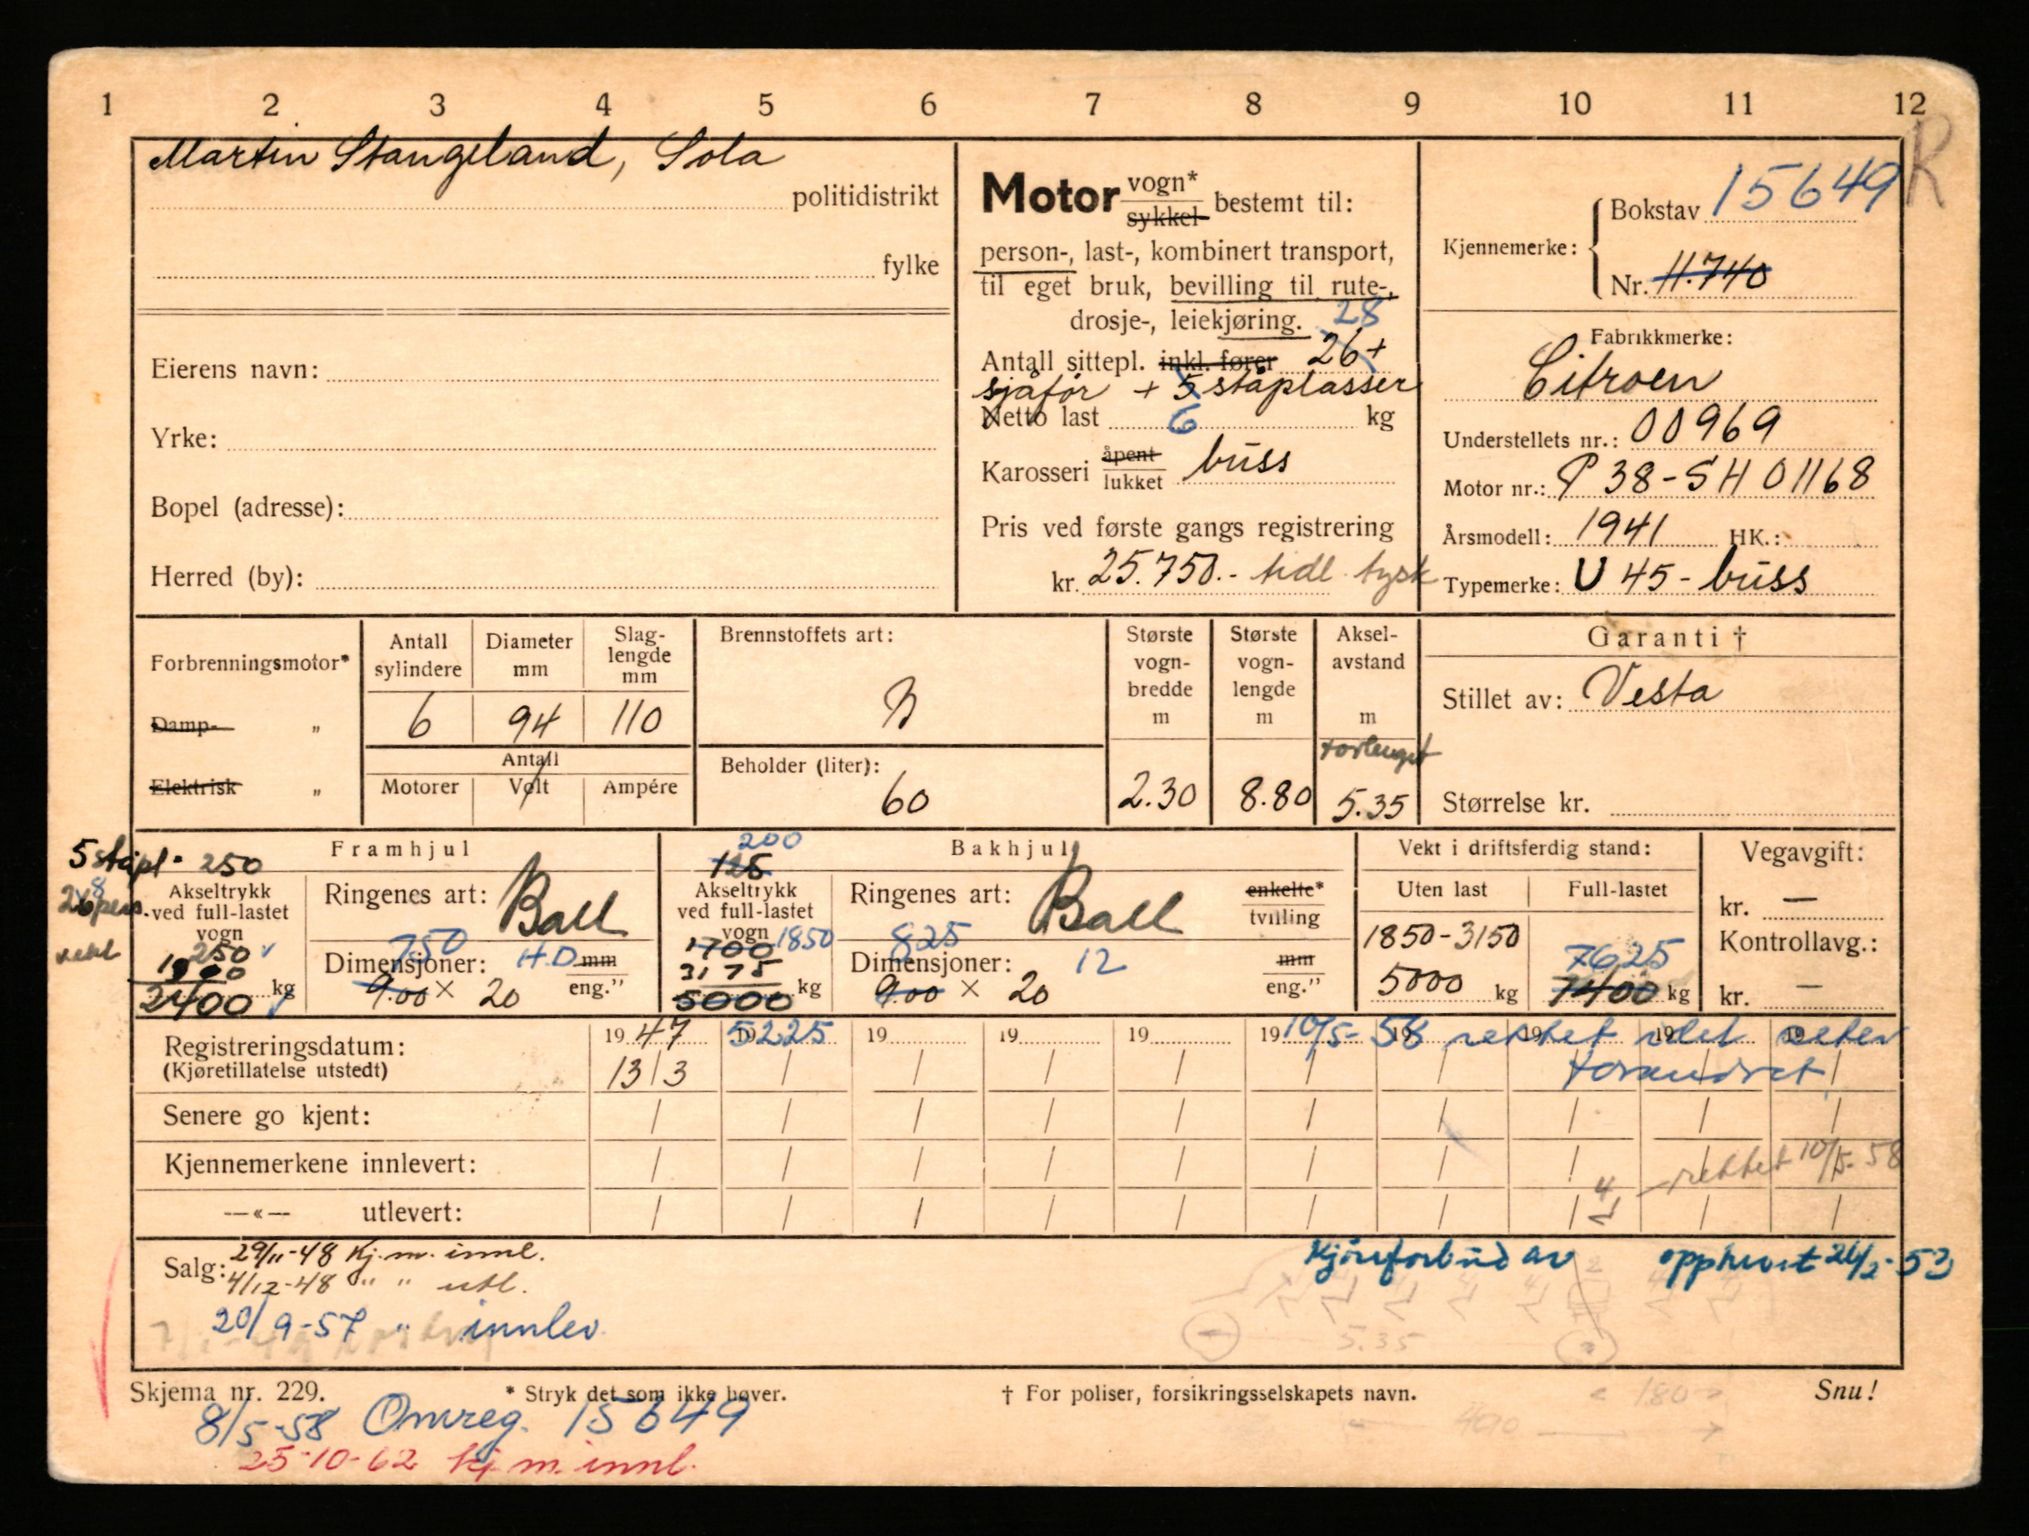 1 2 3 4 5 6 7 8 9 10 11 12
Martin Stangeland, Sola
politidistrikt
fylke
Eierens navn:
Yrke:
Bopel (adresse):
Herred (by):
Motor vogn* sykkel bestemt til:
person-, last-, kombinert transport,
til eget bruk, bevilling til rute-,
drosje-, leiekjøring. 28
Antall sittepl. inkl. fører 26 +
sjåfør + 5 ståplasser
Netto last 6 kg
Karosseri åpent lukket buss
Pris ved første gangs registrering
kr. 25.750.- tidl. tysk
R
Kjennemerke: Bokstav 15649
Nr. 11.740
Fabrikkmerke:
Citroen
Understellets nr.: 00969
Motor nr.: P 38-SH 01168
Årsmodell: 1941 HK.:
Typemerke: U 45 - buss
Forbrenningsmotor*
Damp- „
Elektrisk „
Antall sylindere 6
Diameter mm 94
Slag-lengde mm 110
Antall
Motorer Volt Ampére
Brennstoffets art:
B
Beholder (liter):
60
Største vogn-bredde m 2.30
Største vogn-lengde m 8.80
Aksel-avstand m forlenget 5.35
Garanti †
Stillet av: Vesta
Størrelse kr.
5 ståpl. 250
28 pers.
Framhjul
Akseltrykk ved full-lastet vogn
250
2400 kg
Ringenes art: Ball
Dimensjoner: 750 H.D. mm
9.00 × 20 eng."
200
125
Bakhjul
Akseltrykk ved full-lastet vogn
1700 1850
3175
5000 kg
Ringenes art: Ball enkelte* tvilling
Dimensjoner: 825 12 mm
9.00 × 20 eng."
Vekt i driftsferdig stand:
Uten last Full-lastet
1850-3150 7625
5000 kg 7400 kg
Vegavgift:
kr. —
Kontrollavg.:
kr. —
Registreringsdatum: 19 47 19 5225 19 19 19 19 10/5-58 rettet idet
(Kjøretillatelse utstedt) 13/3 forandret
Senere go kjent:
Kjennemerkene innlevert: rettet 10/5-58
—«— utlevert: 4
Salg: 29/11-48 Kj.m. innl.
4/12-48 " " utl.
20/9-57 " innlev.
Kjøreforbud av opphevet 26/2-53
5.35
Skjema nr. 229. * Stryk det som ikke høver. † For poliser, forsikringsselskapets navn. Snu!
8/5-58 Omreg. 15649
180
400
25-10-62 kj.m. innl.